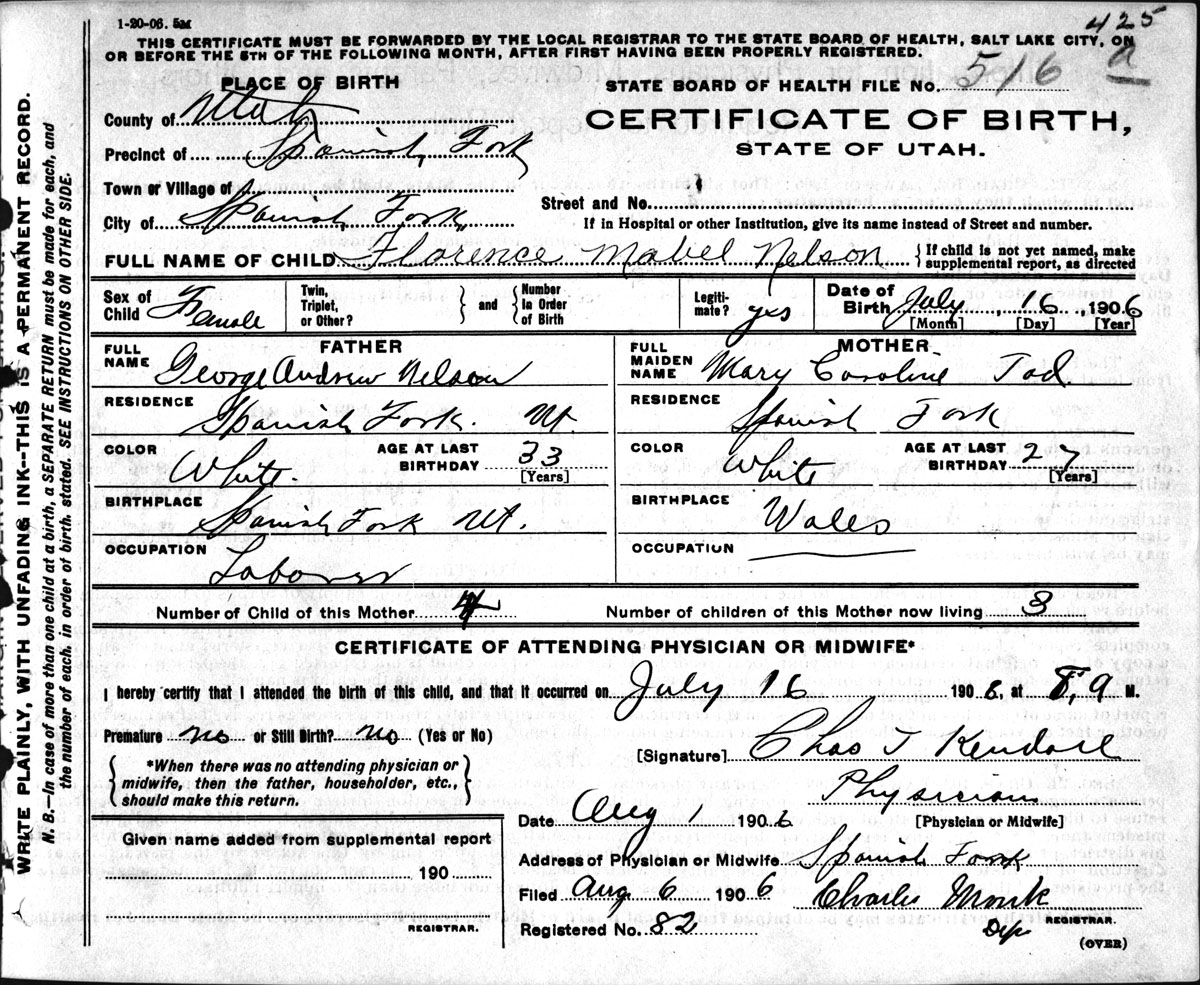 1-20-06. 5M
425
a
THIS CERTIFICATE MUST BE FORWARDED BY THE LOCAL REGISTRAR TO THE STATE BOARD OF HEALTH, SALT LAKE CITY, ON
OR BEFORE THE 5TH OF THE FOLLOWING MONTH, AFTER FIRST HAVING BEEN PROPERLY REGISTERED.
PLACE OF BIRTH
STATE BOARD OF HEALTH FILE NO. 516
County of Utah
CERTIFICATE OF BIRTH,
Precinct of Spanish Fork
STATE OF UTAH.
Town or Village of
Street and No.
City of Spanish Fork
If in Hospital or other Institution, give its name instead of Street and number.
FULL NAME OF CHILD Florence Mabel Nelson { If child is not yet named, make
supplemental report, as directed
Sex of Child Female
Twin, Triplet, or Other?
and
Number In Order of Birth
Legiti-mate? yes
Date of Birth July 16, 1906
[Month] [Day] [Year]
FATHER
FULL NAME George Andrew Nelson
RESIDENCE Spanish Fork. Ut
COLOR White. AGE AT LAST BIRTHDAY 33 [Years]
BIRTHPLACE Spanish Fork Ut.
OCCUPATION Laborer
MOTHER
FULL MAIDEN NAME Mary Caroline Tod.
RESIDENCE Spanish Fork
COLOR White AGE AT LAST BIRTHDAY 27 [Years]
BIRTHPLACE Wales
OCCUPATION
Number of Child of this Mother 4
Number of children of this Mother now living 3
CERTIFICATE OF ATTENDING PHYSICIAN OR MIDWIFE*
I hereby certify that I attended the birth of this child, and that it occurred on July 16 1906, at 8, a M.
Premature no or Still Birth? no (Yes or No)
[Signature] Chas T Kendall
*When there was no attending physician or
midwife, then the father, householder, etc.,
should make this return.
Physician
[Physician or Midwife]
Date Aug 1 1906
Given name added from supplemental report
190
REGISTRAR.
Address of Physician or Midwife Spanish Fork
Filed Aug 6 1906 Charles Monk
REGISTRAR.
Registered No. 82
Dep
(OVER)
WRITE PLAINLY, WITH UNFADING INK--THIS IS A PERMANENT RECORD.
N. B.—In case of more than one child at a birth, a SEPARATE RETURN must be made for each, and
the number of each, in order of birth, stated. SEE INSTRUCTIONS ON OTHER SIDE.